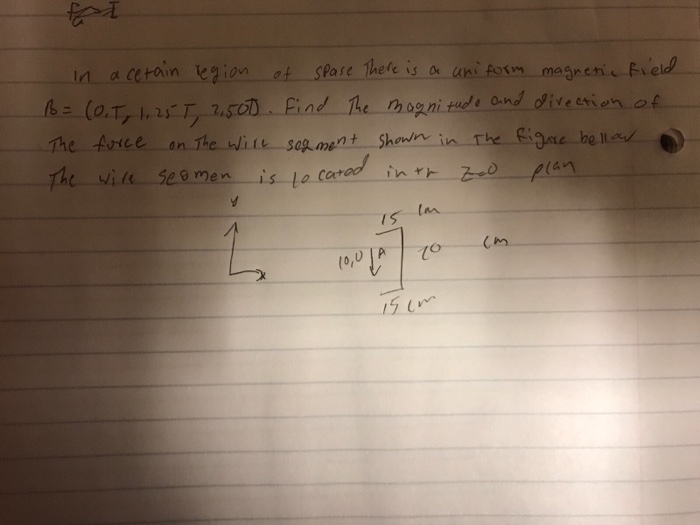 in a cetain region of spase there is a uniform magnetic field
B = (0.T, 1.25 T, 2.50T). Find The magnitude and direction of
The force on The wire segment shown in The figure bellow
The wire segmen is located in Z=0 plan
y
15 cm
10,0 A 20 cm
x
15 cm